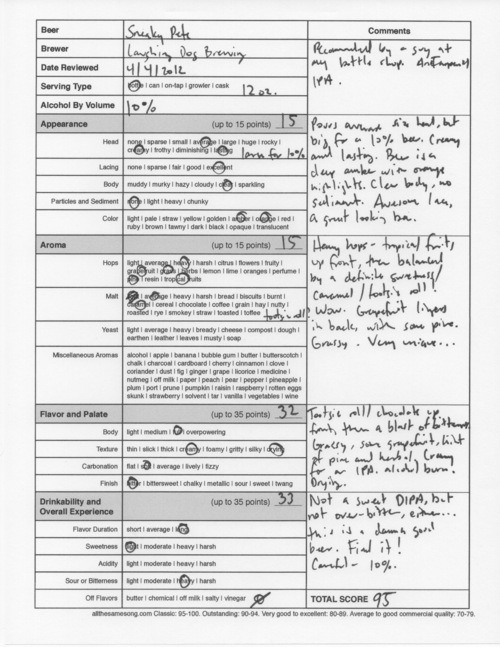 Beer Sneaky Pete
Brewer Laughing Dog Brewing
Date Reviewed 4/4/2012
Serving Type bottle | can | on-tap | growler | cask 12 oz.
Alcohol By Volume 10%
Comments
Recommended by a guy at
my bottle shop.
IPA.
Appearance (up to 15 points) 15
Head none | sparse | small | average | large | huge | rocky |
creamy | frothy | diminishing | lasting large for 10%
Lacing none | sparse | fair | good | excellent
Body muddy | murky | hazy | cloudy | clear | sparkling
Particles and Sediment none | light | heavy | chunky
Color light | pale | straw | yellow | golden | amber | orange | red |
ruby | brown | tawny | dark | black | opaque | translucent
Pours average size head, but
big for a 10% beer. Creamy
and lasting. Beer is a
deep amber with orange
highlights. Clear body, no
sediment. Awesome lace,
a great looking beer.
Aroma (up to 15 points) 15
Hops light | average | heavy | harsh | citrus | flowers | fruity |
grapefruit | grass | herbs | lemon | lime | oranges | perfume |
pine | resin | tropical fruits
Malt light | average | heavy | harsh | bread | biscuits | burnt |
caramel | cereal | chocolate | coffee | grain | hay | nutty |
roasted | rye | smokey | straw | toasted | toffee tootsie roll!
Yeast light | average | heavy | bready | cheese | compost | dough |
earthen | leather | leaves | musty | soap
Miscellaneous Aromas alcohol | apple | banana | bubble gum | butter | butterscotch |
chalk | charcoal | cardboard | cherry | cinnamon | clove |
coriander | dust | fig | ginger | grape | licorice | medicine |
nutmeg | off milk | paper | peach | pear | pepper | pineapple |
plum | port | prune | pumpkin | raisin | raspberry | rotten eggs
skunk | strawberry | solvent | tar | vanilla | vegetables | wine
Heavy hops - tropical fruits,
up front, then balanced
by a definite sweetness/
caramel/tootsie roll!
Wow. Grapefruit lingers
in back, with some pine.
Grassy. Very unique...
Flavor and Palate (up to 35 points) 32
Body light | medium | full | overpowering
Texture thin | slick | thick | creamy | foamy | gritty | silky | drying
Carbonation flat | soft | average | lively | fizzy
Finish bitter | bittersweet | chalky | metallic | sour | sweet | twang
Tootsie roll/chocolate up
front, then a blast of bitterness.
Grassy, some grapefruit, hint
of pine and herbal. Creamy
for an IPA. alcohol burn.
Drying.
Drinkability and
Overall Experience (up to 35 points) 33
Flavor Duration short | average | long
Sweetness light | moderate | heavy | harsh
Acidity light | moderate | heavy | harsh
Sour or Bitterness light | moderate | heavy | harsh
Off Flavors butter | chemical | off milk | salty | vinegar
Not a sweet DIPA, but
not over-bitter, either...
this is a damn good
beer. Find it!
Careful - 10%.
TOTAL SCORE 95
allthesamesong.com Classic: 95-100. Outstanding: 90-94. Very good to excellent: 80-89. Average to good commercial quality: 70-79.